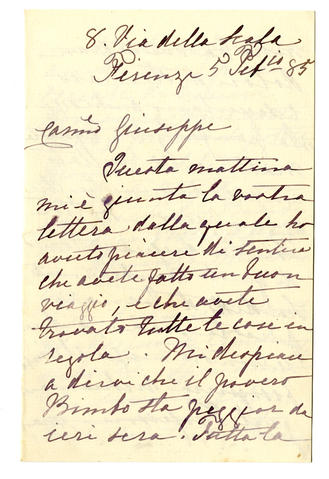 8. Via della Scala
Firenze 5 Feb.io 85
Carmo Giuseppe
Questa mattina
mi è giunta la vostra
lettera dalla quale ho
avuto piacere di sentire
che avete fatto un buon
viaggio, e che avete
trovato tutte le cose in
regola. Mi dispiace
a dirvi che il povero
Bimbo sta peggior da
ieri sera. Tutta la